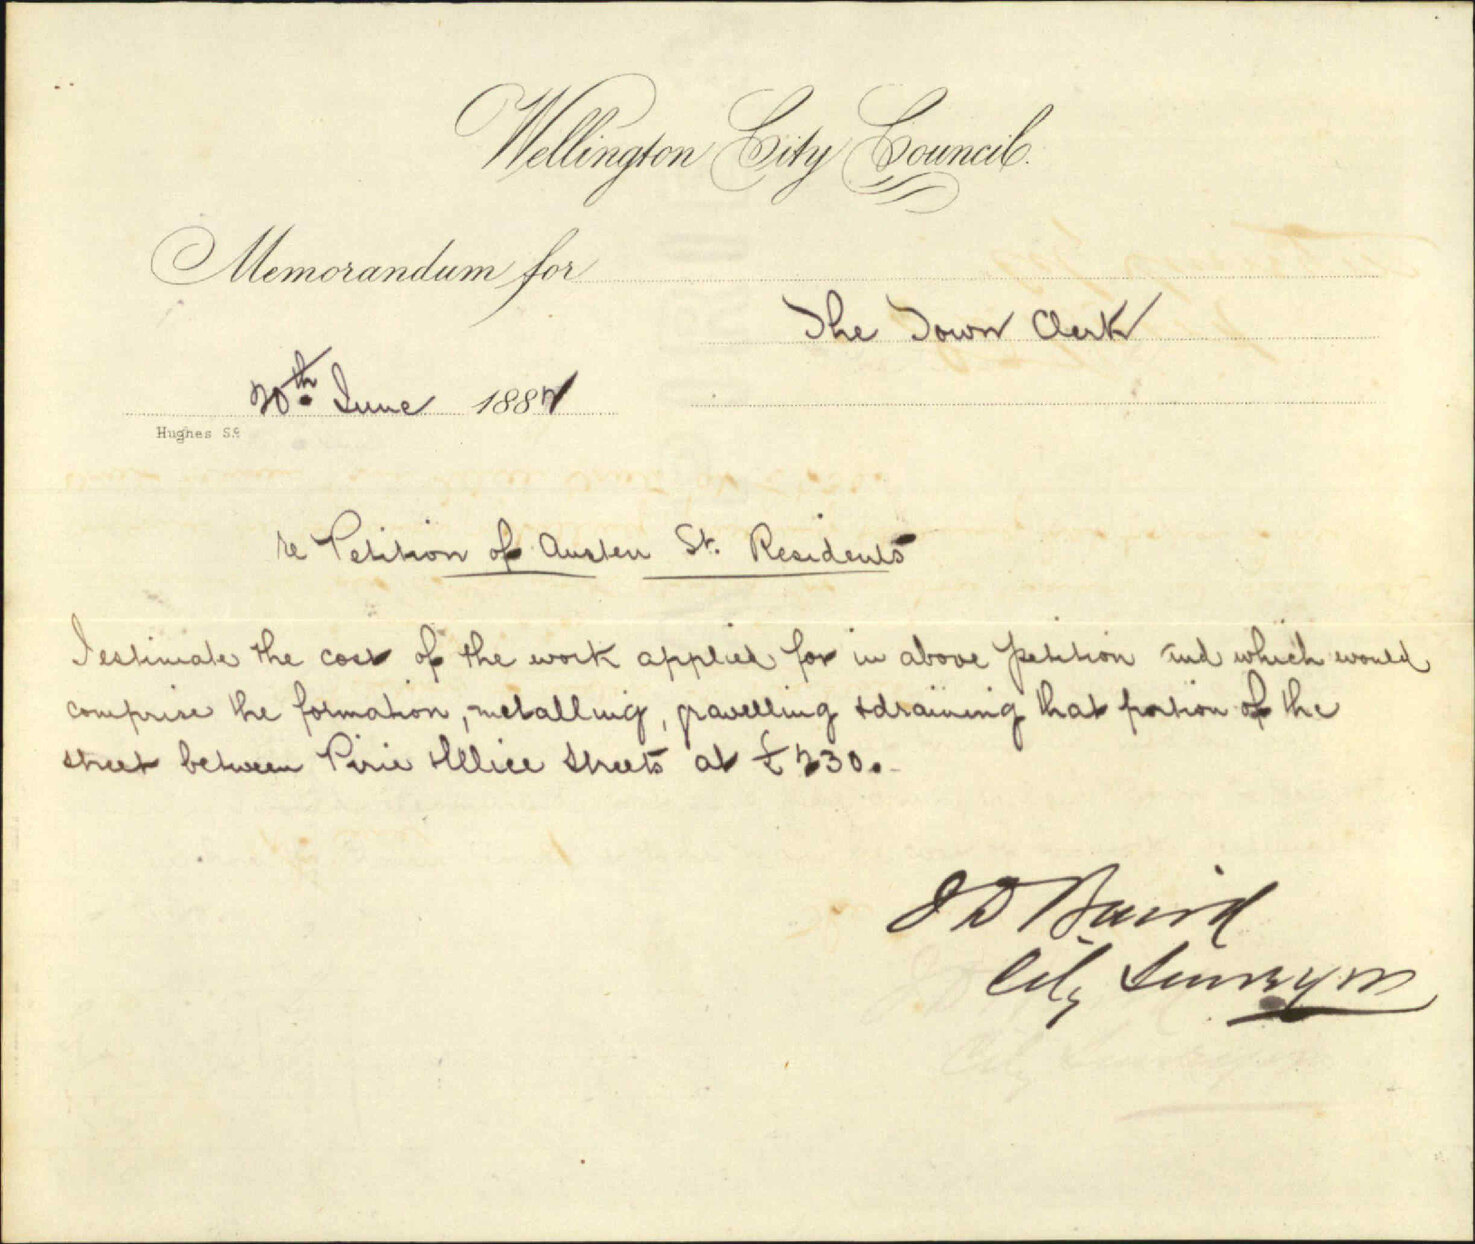 Wellington City Council.
Memorandum for
The Town Clerk
20th June 1887
Hughes Sc
re Petition of Austen St. Residents
I estimate the cost of the work applied for in above petition and which would
comprise the formation, metalling, gravelling & draining that portion of the
street between Pirie & Ellice Streets at £230.
J D Baird
City Surveyor